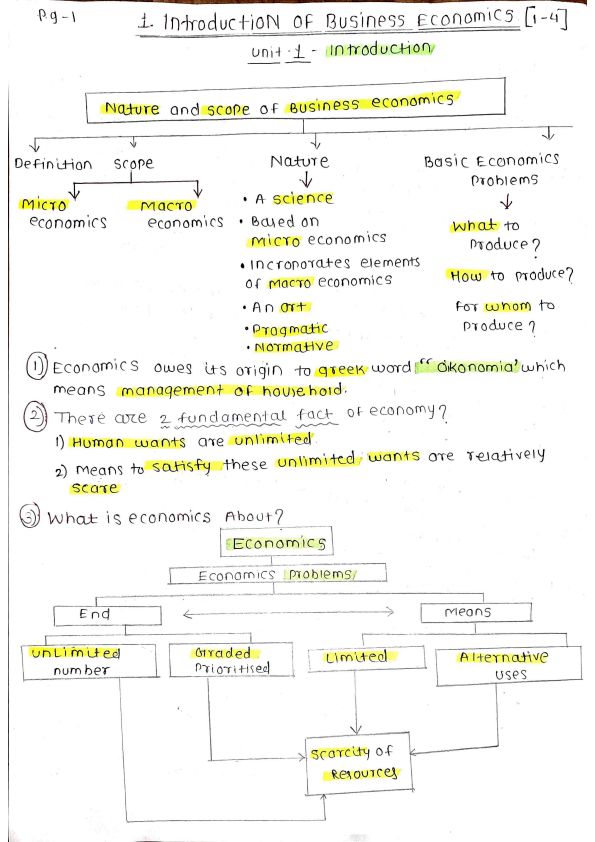 Pg-1
1. Introduction Of Business Economics [1-4]
Unit-1 - Introduction
Nature and scope of Business economics
Definition
scope
Micro economics
Macro economics
Nature
• A science
• Based on
Micro economics
• Incroporates elements
of macro economics
• An art
• Pragmatic
• Normative
Basic Economics
Problems
What to
Produce?
How to produce?
For whom to
Produce?
1) Economics owes its origin to greek word "oikonomia' which
means management of household.
2) There are 2 fundamental fact of economy?
1) Human wants are unlimited
2) Means to satisfy these unlimited wants are relatively
scare
3) What is economics About?
Economics
Economics Problems
End
Means
Unlimited
number
Graded
Prioritised
Limited
Alternative
Uses
Scarcity of
Resources